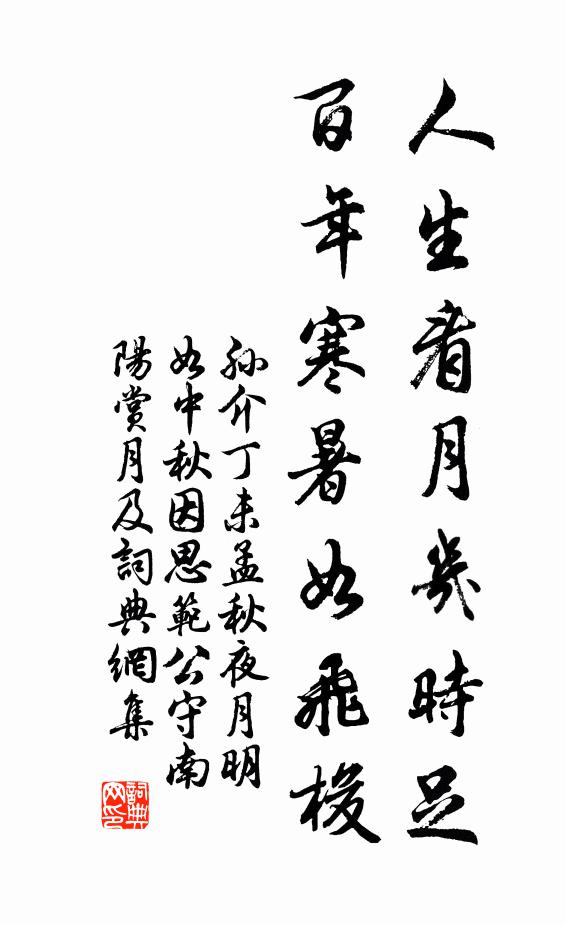 人生看月幾時足
百年寒暑如飛梭
孫介丁未孟秋夜月明
如中秋因思範公守南
陽賞月及詞典網集
詞典网印